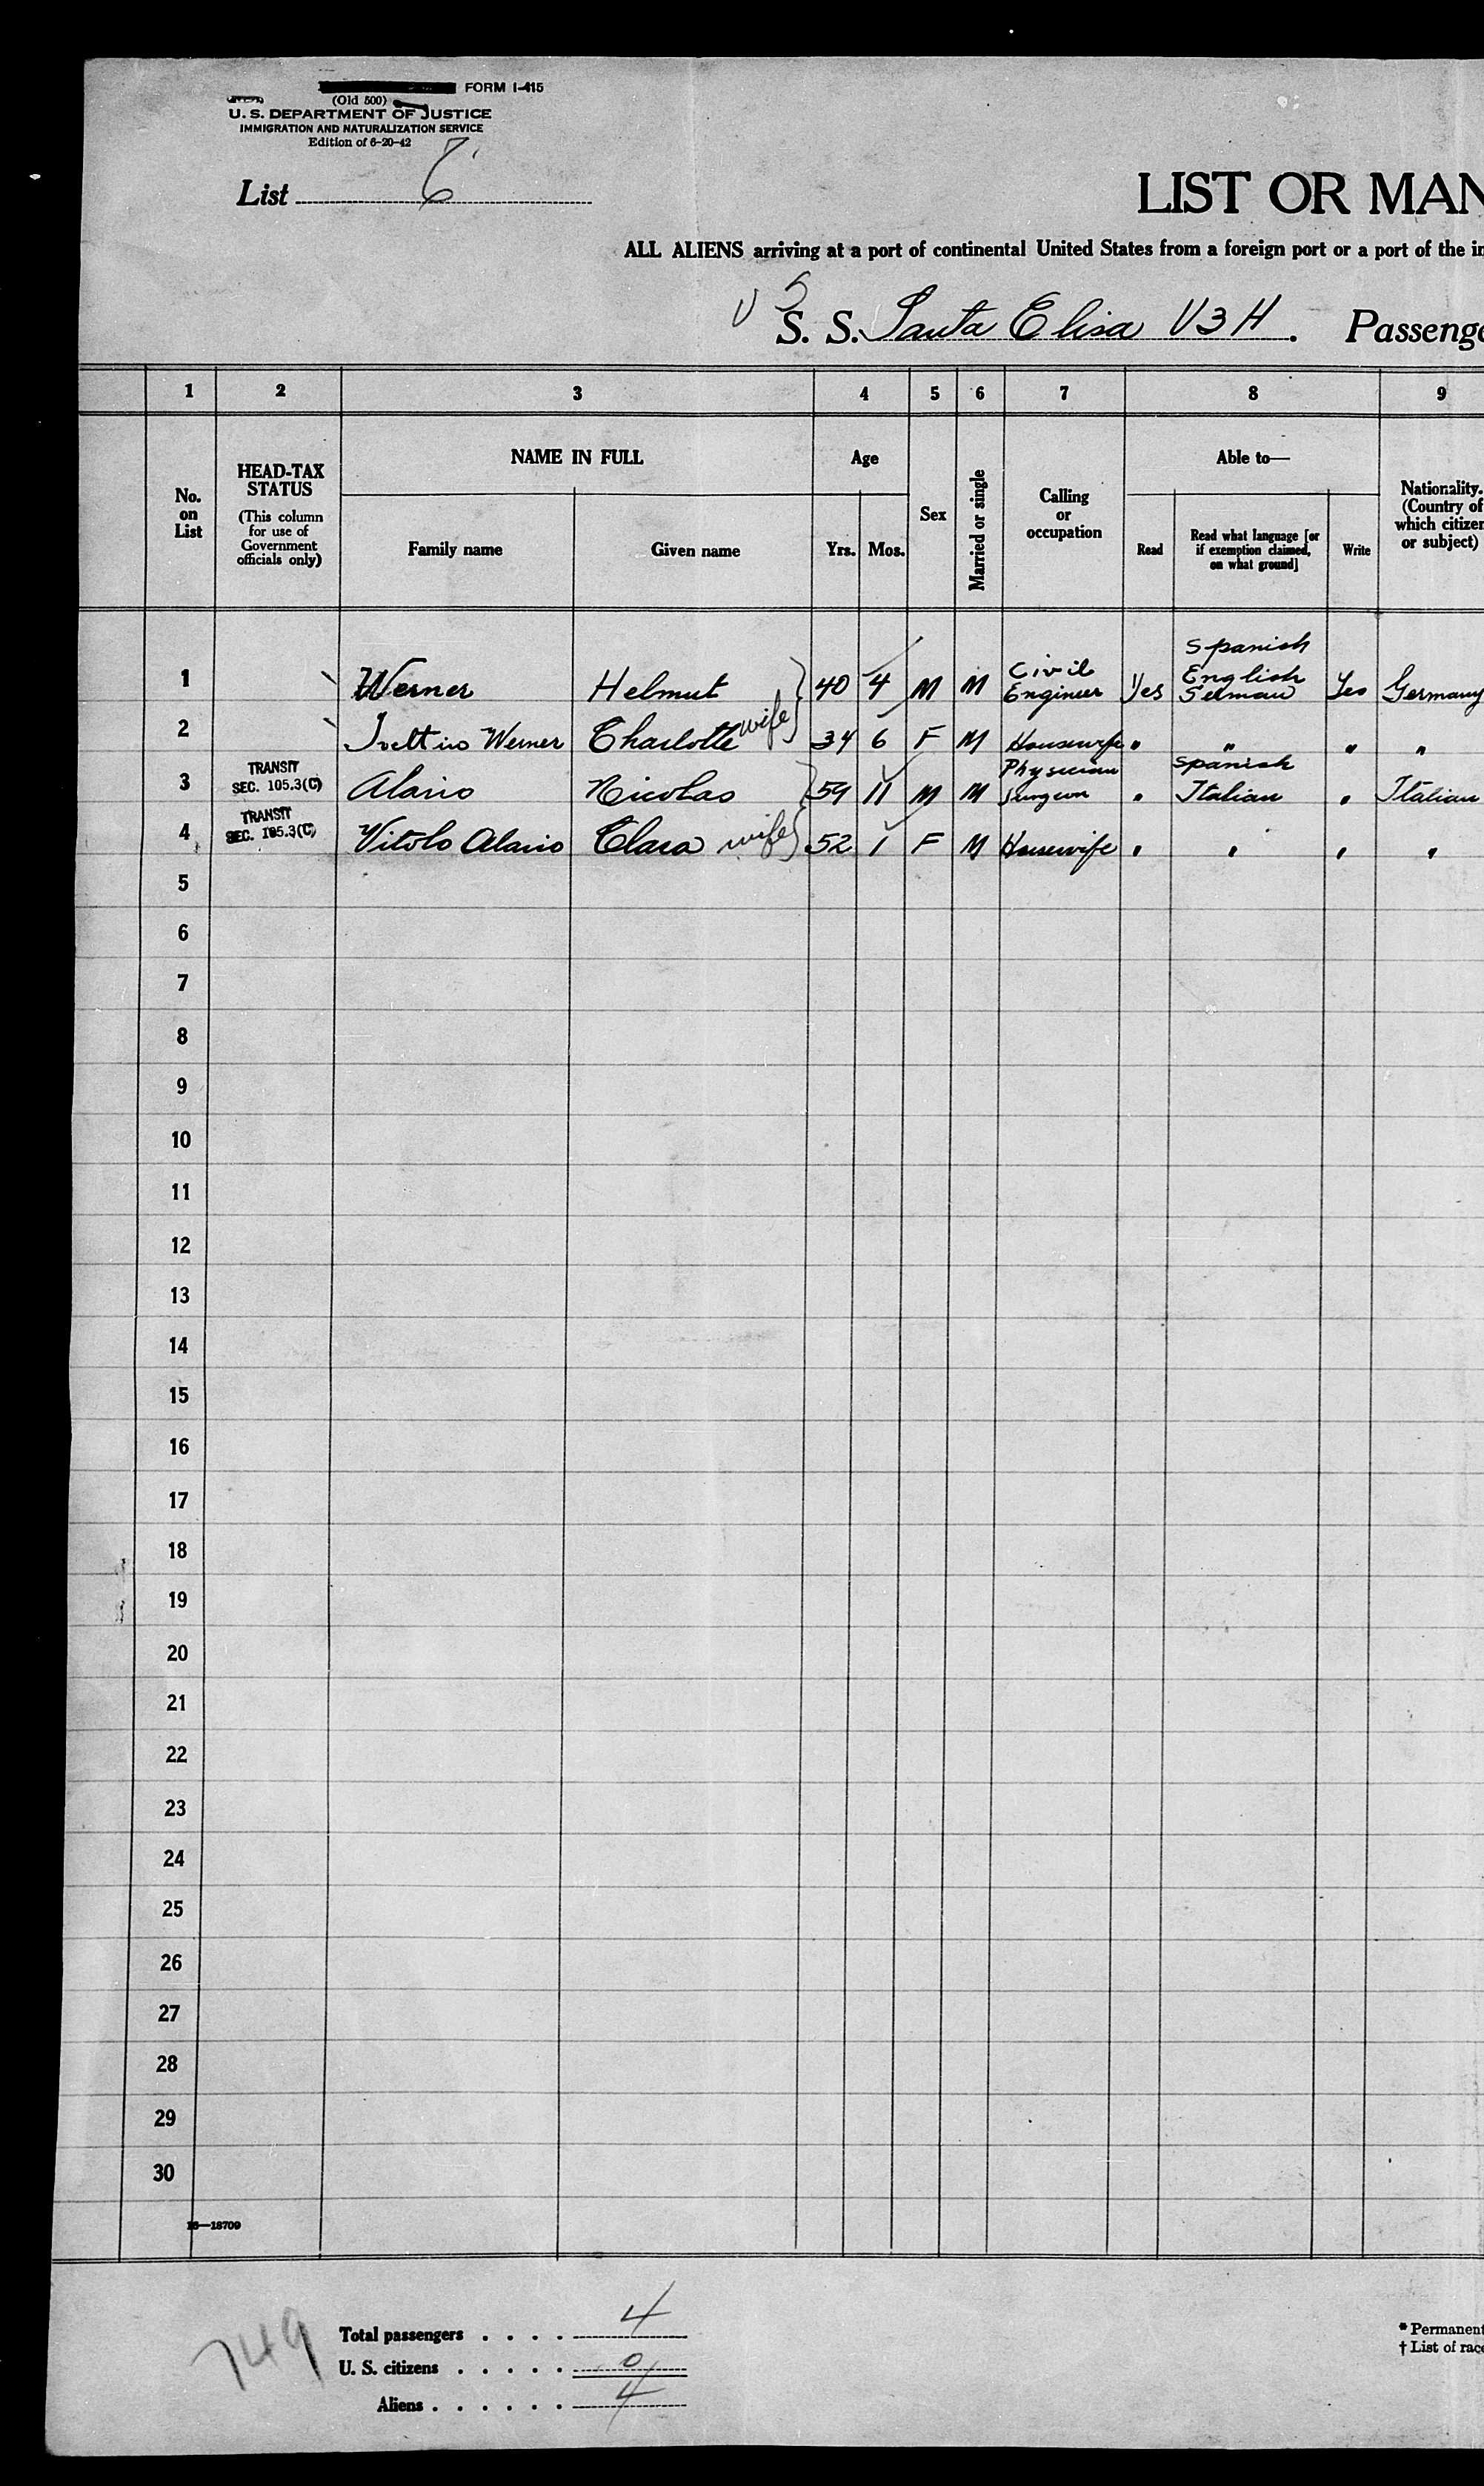 FORM I-415
(Old 500)
U. S. DEPARTMENT OF JUSTICE
IMMIGRATION AND NATURALIZATION SERVICE
Edition of 6-20-42
List 6
LIST OR MAN
ALL ALIENS arriving at a port of continental United States from a foreign port or a port of the in
S. S. Santa Elisa V3H. Passenge
1 2 3 4 5 6 7 8 9
No. on List
HEAD-TAX STATUS
(This column for use of Government officials only)
NAME IN FULL
Family name
Given name
Age
Yrs.
Mos.
Sex
Married or single
Calling or occupation
Able to—
Read
Read what language [or if exemption claimed, on what ground]
Write
Nationality. (Country of which citizen or subject)
1 Werner Helmut 40 4 M M Civil Engineer Yes Spanish English German Yes Germany
2 Werner Charlotte wife 34 6 F M Housewife " " " "
3 TRANSIT SEC. 105.3(C) Alario Nicolas 59 11 M M Physician Surgeon " Spanish Italian " Italian
4 TRANSIT SEC. 105.3(C) Vitolo Alario Clara wife 52 1 F M Housewife " " " "
5
6
7
8
9
10
11
12
13
14
15
16
17
18
19
20
21
22
23
24
25
26
27
28
29
30
16—18709
749
Total passengers . . . . 4
U. S. citizens . . . . . 0
Aliens . . . . . . 4
* Permanent
† List of race